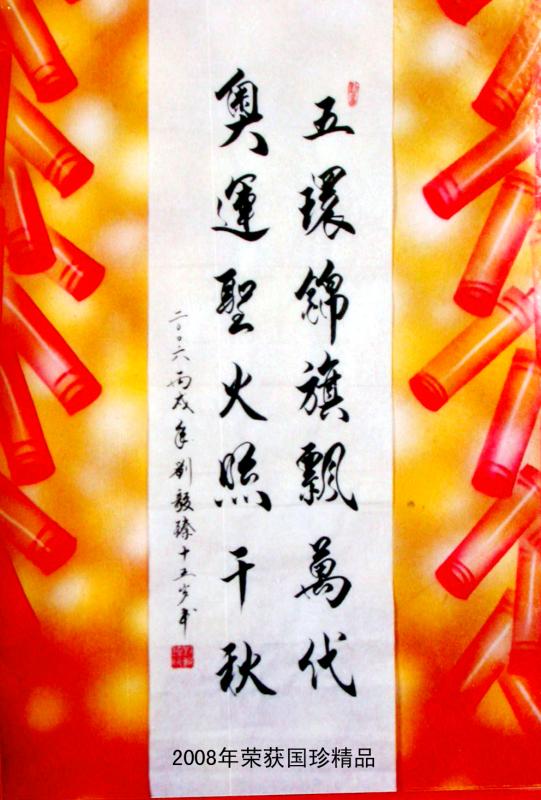 五環錦旗飄萬代
奧運聖火照千秋
二〇〇六丙戌年劉毅臻十五岁书
2008年荣获国珍精品